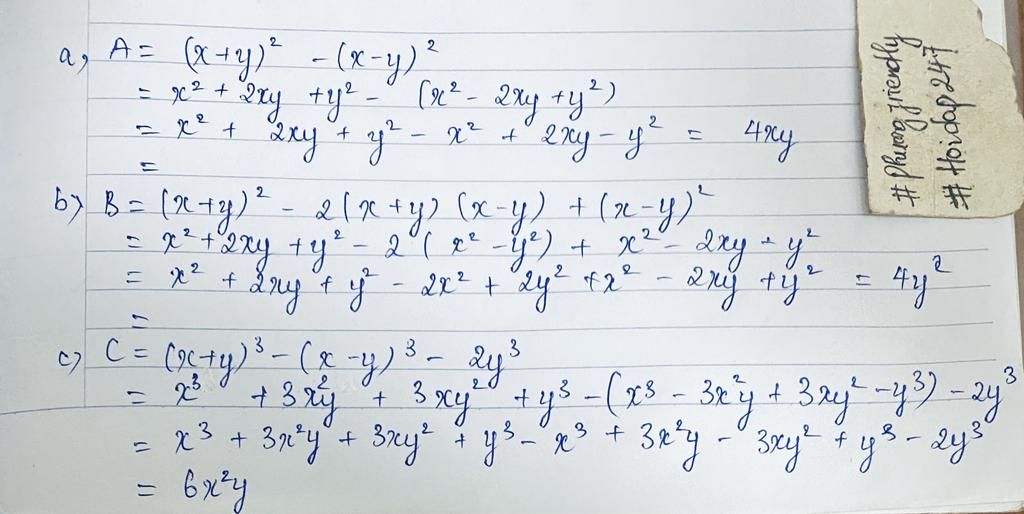 a, A = (x+y)² - (x-y)²
= x² + 2xy + y² - (x² - 2xy + y²)
= x² + 2xy + y² - x² + 2xy - y² = 4xy
=
b) B = (x+y)² - 2(x+y)(x-y) + (x-y)²
= x² + 2xy + y² - 2(x² - y²) + x² - 2xy + y²
= x² + 2xy + y² - 2x² + 2y² + x² - 2xy + y² = 4y²
=
c) C = (x+y)³ - (x-y)³ - 2y³
= x³ + 3x²y + 3xy² + y³ - (x³ - 3x²y + 3xy² - y³) - 2y³
= x³ + 3x²y + 3xy² + y³ - x³ + 3x²y - 3xy² + y³ - 2y³
= 6x²y
#Phuongfriendly
#Hoidap247